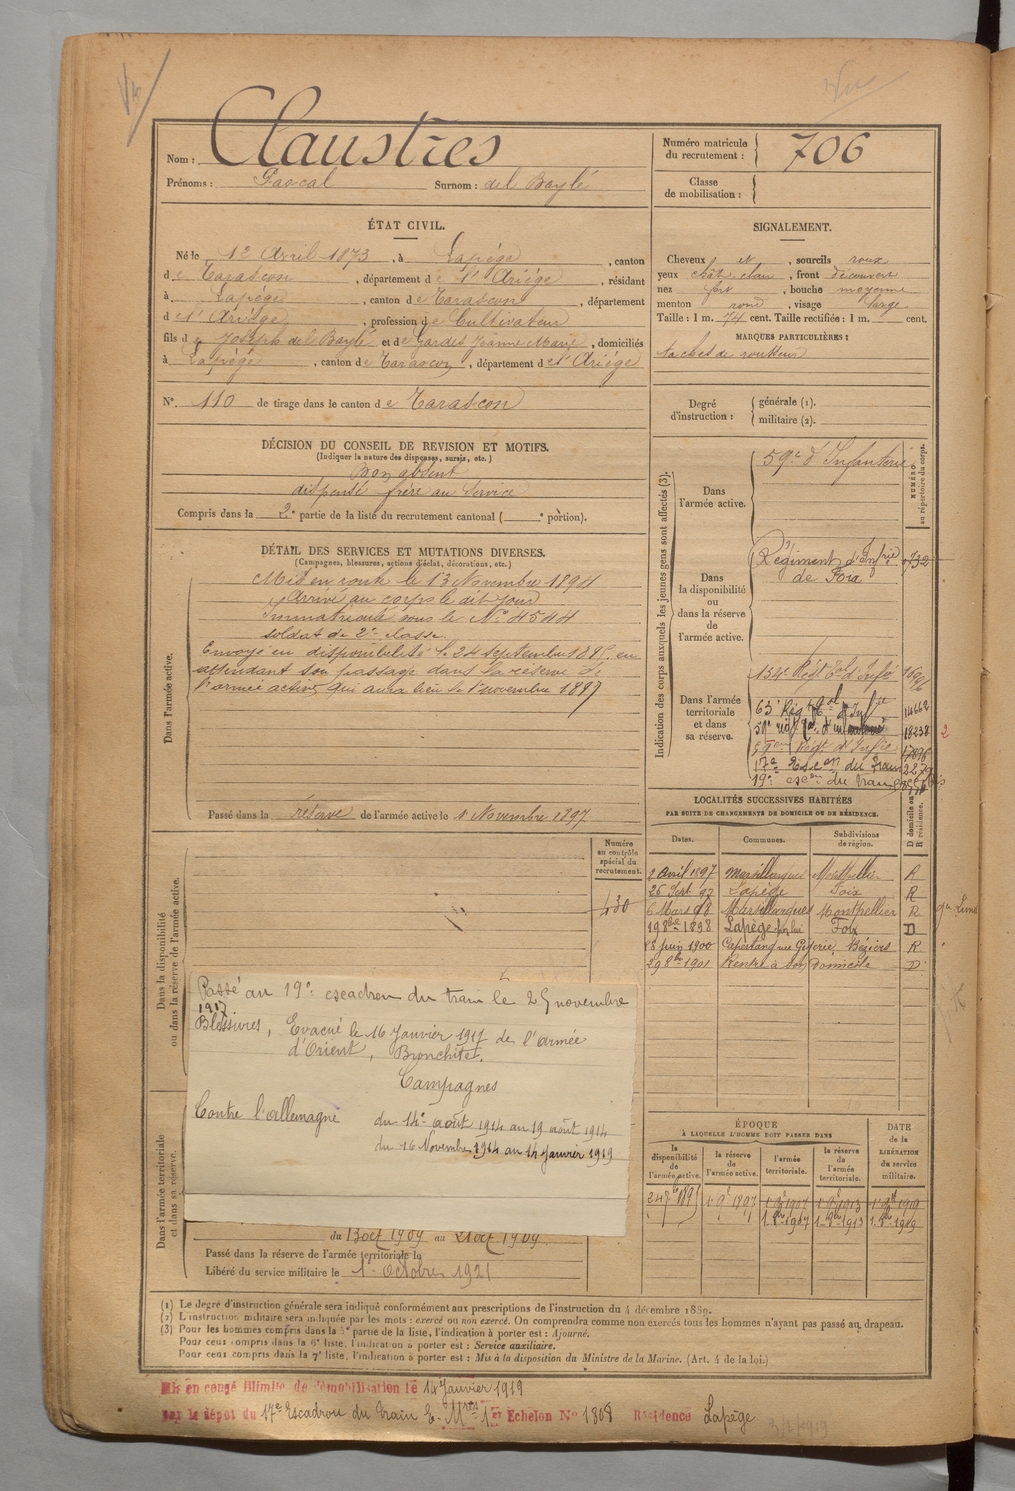 Nom : Claustres
Prénoms : Pascal Surnom : del Baylé
Numéro matricule
du recrutement : 706
Classe
de mobilisation :
ÉTAT CIVIL.
Né le 12 Avril 1873, à Lapège, canton
de Tarascon, département de l'Ariège, résidant
à Lapège, canton de Tarascon, département
d l'Ariège, profession de Cultivateur
fils de Joseph del Baylé et de Gardes Jeanne Marie, domiciliés
à Lapège, canton de Tarascon, département de l'Ariège
N° 110 de tirage dans le canton de Tarascon
DÉCISION DU CONSEIL DE REVISION ET MOTIFS.
(Indiquer la nature des dispenses, sursis, etc.)
Bon absent
dispensé frère au Service
Compris dans la 2e partie de la liste du recrutement cantonal ( e portion).
DÉTAIL DES SERVICES ET MUTATIONS DIVERSES.
(Campagnes, blessures, actions d'éclat, décorations, etc.)
Dans l'armée active.
Mis en route le 13 Novembre 1894
Arrivé au corps le dit jour
immatriculé sous le N° 4544
soldat de 2e classe
Envoyé en disponibilité le 24 septembre 1895, en
attendant son passage dans la réserve de
l'armée active qui aura lieu le 1 novembre 1897
Passé dans la réserve de l'armée active le 1 Novembre 1897
Numéro
au contrôle
spécial du
recrutement.
430
Dans la disponibilité
ou dans la réserve de l'armée active.
Passé au 19e escadron du train le 25 novembre
1917
Blessures, Evacué le 16 Janvier 1917 de l'armée
d'Orient, Bronchite.
Campagnes
Contre l'allemagne du 14 août 1914 au 19 août 1914
du 16 Novembre 1914 au 14 Janvier 1919
Dans l'armée territoriale
et dans sa réserve.
du 13 oct 1909 au 21 oct 1909
Passé dans la réserve de l'armée territoriale le
Libéré du service militaire le 1 Octobre 1921
SIGNALEMENT.
Cheveux , sourcils roux
yeux chât. clair, front découvert
nez fort, bouche moyenne
menton rond, visage large
Taille : 1 m. 74 cent. Taille rectifiée : 1 m. cent.
MARQUES PARTICULIÈRES :
taches de rousseur
Degré
d'instruction :
générale (1).
militaire (2).
Indication des corps auxquels les jeunes gens sont affectés (3).
NUMÉRO
au répertoire du corps.
Dans
l'armée active.
59e d'Infanterie
Dans
la disponibilité
ou
dans la réserve
de
l'armée active.
Régiment d'Infrie
de Foix
732
Dans l'armée
territoriale
et dans
sa réserve.
134e Régt Tal d'Infie
63e Rég. d'Infie 14662
59e rég 18238 2
59em Régt d'Infie
17e Escon du Train
19e escon du train
LOCALITÉS SUCCESSIVES HABITÉES
PAR SUITE DE CHANGEMENTS DE DOMICILE OU DE RÉSIDENCE.
Dates. Communes. Subdivisions
de région. D domicile ou
R résidence.
2 Avril 1897 Marsillargues Montpellier R
26 Sept 97 Lapège Foix R
6 Mars 98 Marsillargues Montpellier R
19 8bre 1898 Lapège Foix D
18 juin 1900 Capestang Béziers R
29 8bre 1901 Rentré à son Domicile D
ÉPOQUE
À LAQUELLE L'HOMME DOIT PASSER DANS
la
disponibilité
de
l'armée active.
la réserve
de
l'armée active.
l'armée
territoriale.
la réserve
de
l'armée
territoriale.
DATE
de la
LIBÉRATION
du service
militaire.
24 7bre 1895 1 9bre 1897 1 9bre 1907 1 9bre 1913 1 9bre 1919
1 8bre 1907 1 8bre 1913 1 8bre 1919
(1) Le degré d'instruction générale sera indiqué conformément aux prescriptions de l'instruction du 4 décembre 1889.
(2) L'instruction militaire sera indiquée par les mots : exercé ou non exercé. On comprendra comme non exercés tous les hommes n'ayant pas passé au drapeau.
(3) Pour les hommes compris dans la 5e partie de la liste, l'indication à porter est : Ajourné.
Pour ceux compris dans la 6e liste, l'indication à porter est : Service auxiliaire.
Pour ceux compris dans la 7e liste, l'indication à porter est : Mis à la disposition du Ministre de la Marine. (Art. 4 de la loi.)
Mis en congé illimité de démobilisation le 14 Janvier 1919
par le dépôt du 17e Escadron du Train 1er Echelon No 1808 Résidence Lapège